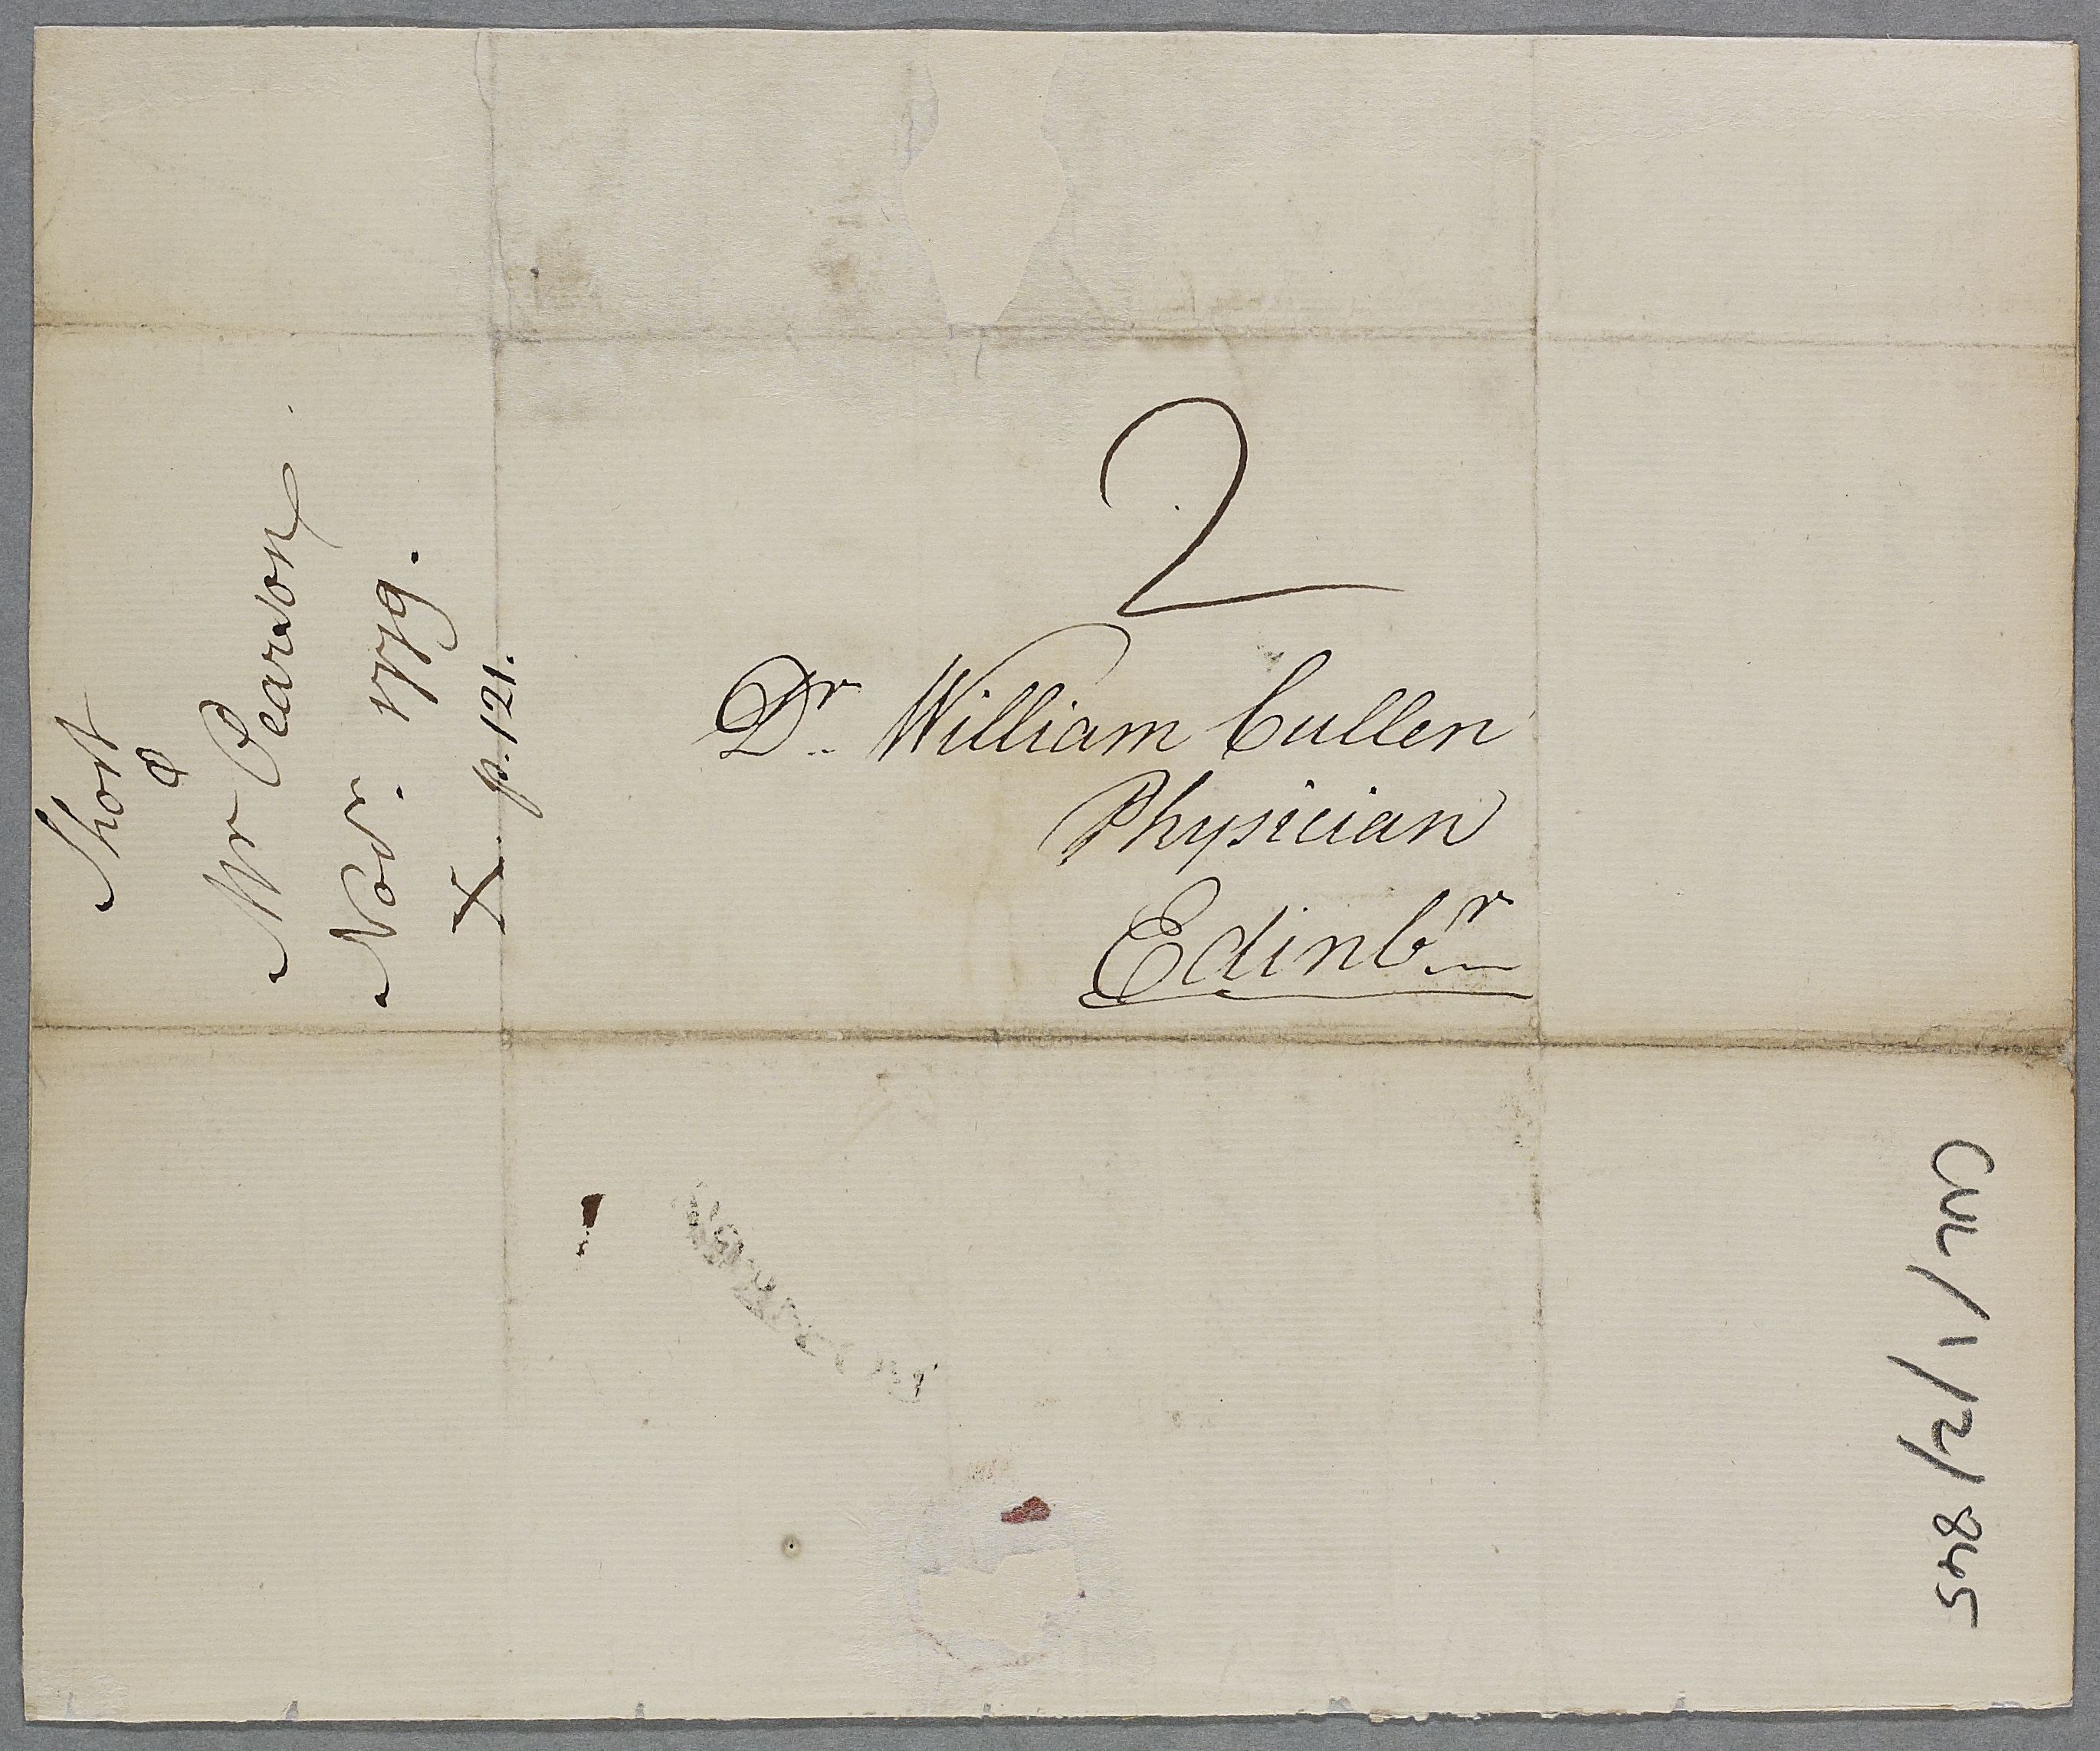 Short
@
Mr Pearson
Novr. 1779.
X p. 121.
2
Dr. William Cullen
Physician
Edinbr
CUL/1/2/845